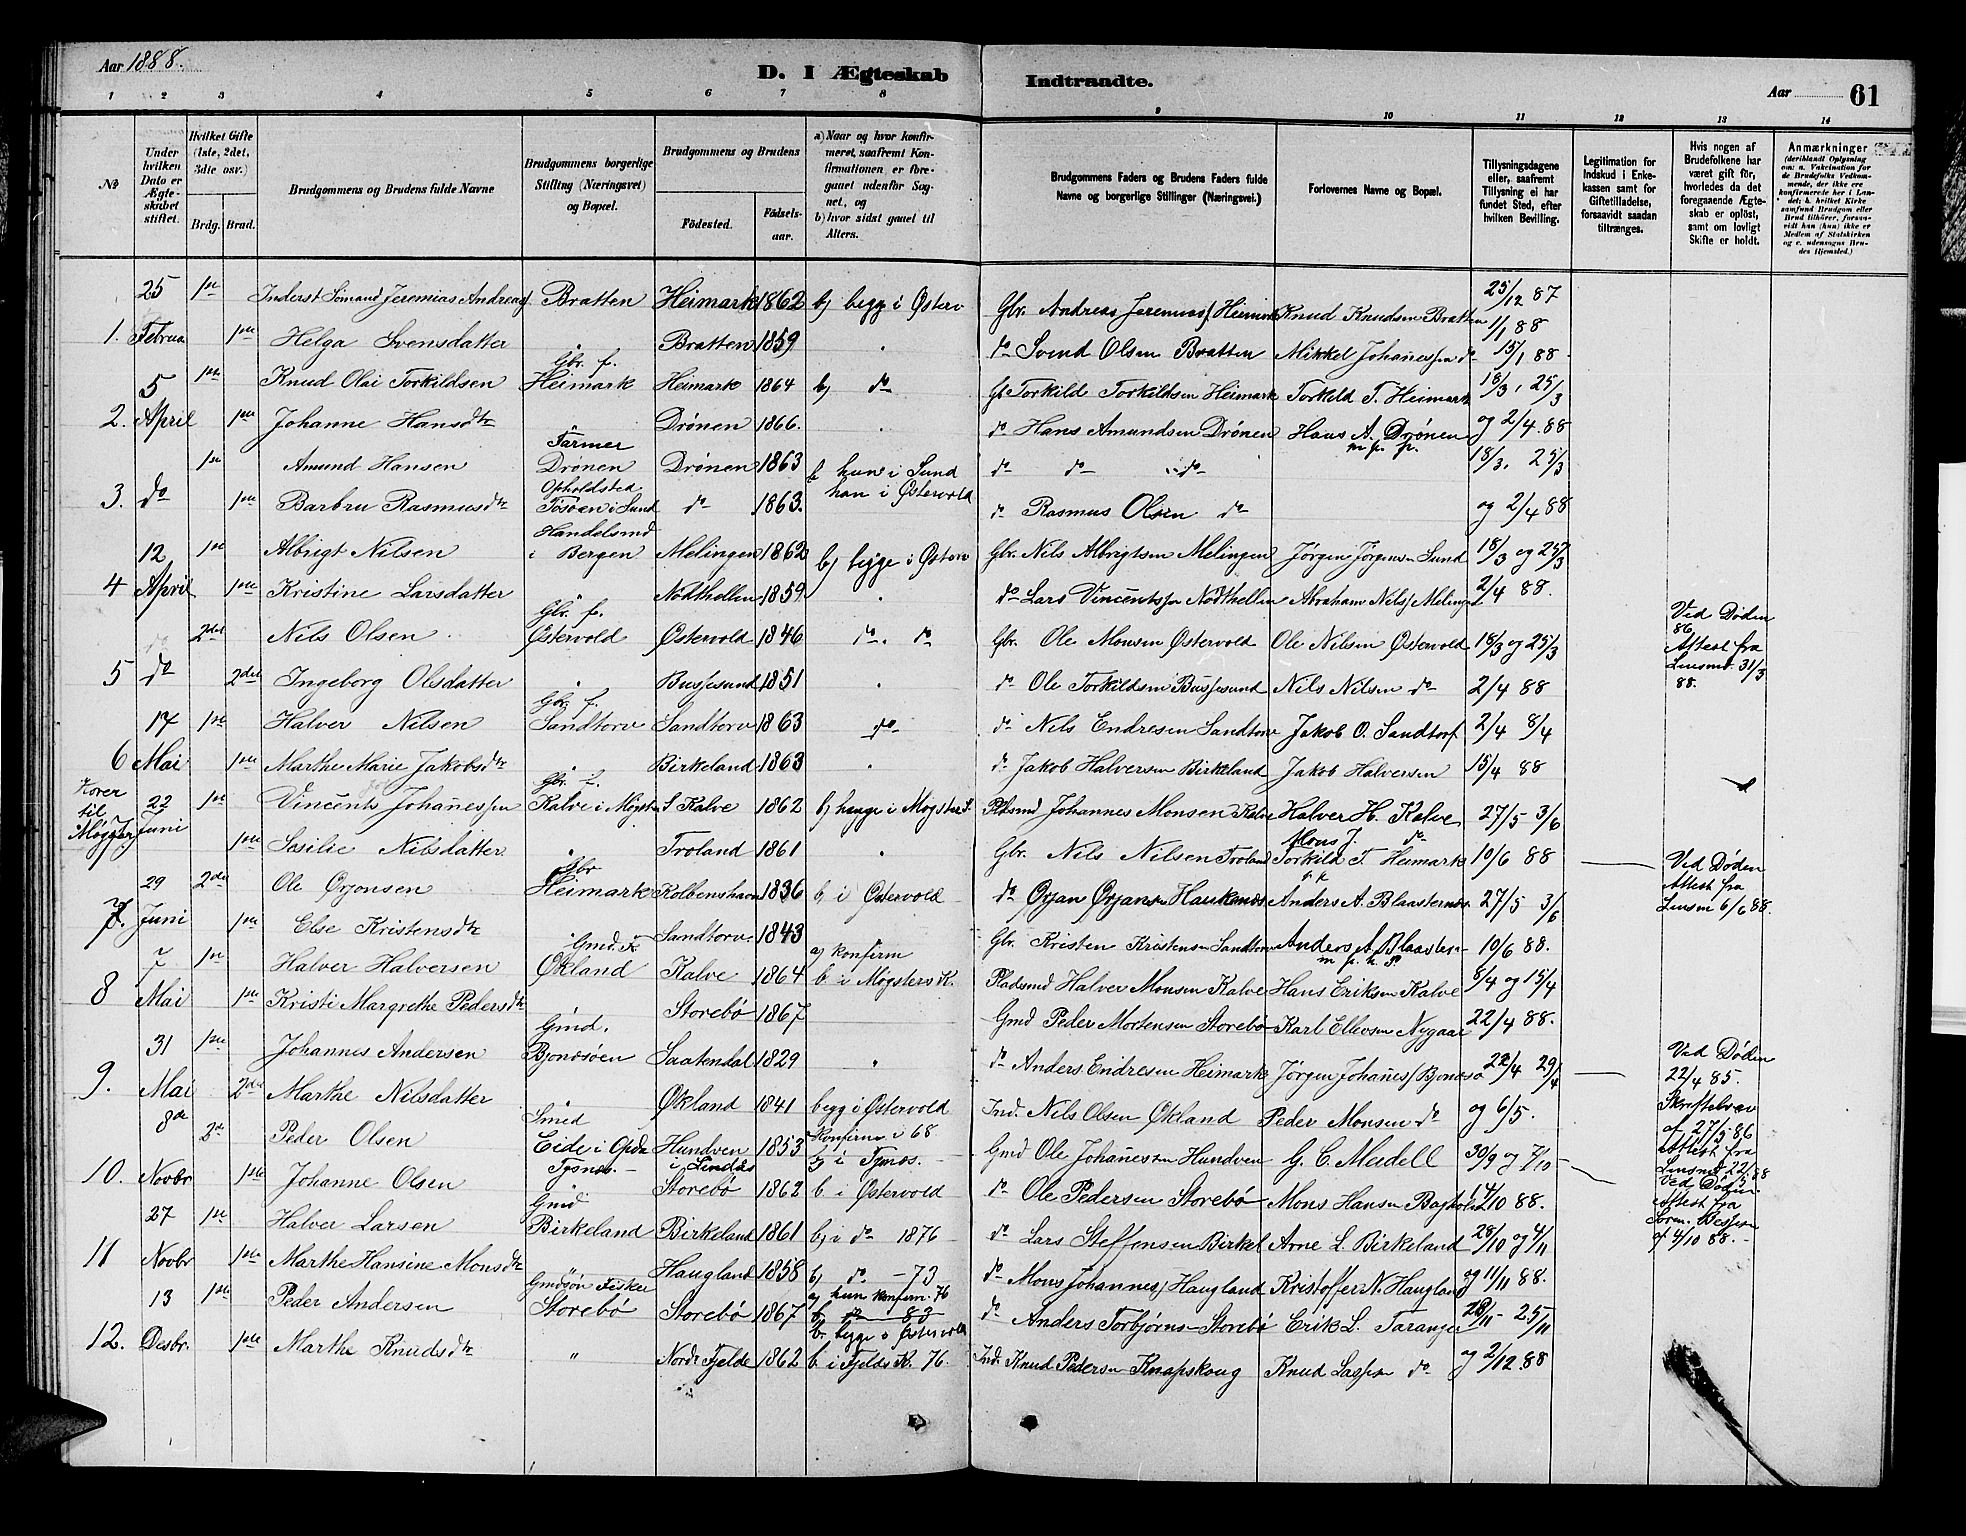 Aar 1888.
D. I Ægteskab Indtraadte.
Aar 61
1 2 3 4 5 6 7 8 9 10 11 12 13 14
No
Under hvilken Dato er Ægteskabet stiftet.
Hvilket Gifte (1ste, 2det, 3die osv.)
Brdg. Brud.
Brudgommens og Brudens fulde Navne
Brudgommens borgerlige Stilling (Næringsvei) og Bopæl.
Brudgommens og Brudens
Fødested. Fødselsaar.
a) Naar og hvor konfirmeret, saafremt Konfirmationen er foregaaet udenfor Sognet, og
b) hvor sidst gaaet til Alters.
Brudgommens Faders og Brudens Faders fulde Navne og borgerlige Stillinger (Næringsvei.)
Forlovernes Navne og Bopæl.
Tillysningsdagene eller, saafremt Tillysning ei har fundet Sted, efter hvilken Bevilling.
Legitimation for Indskud i Enkekassen samt for Giftetilladelse, forsaavidt saadan tiltrænges.
Hvis nogen af Brudefolkene har været gift før, hvorledes da det foregaaende Ægteskab er opløst, samt om lovligt Skifte er holdt.
Anmærkninger
25 1ste Jeremias Bratten Heimark 1862 b) begg i Østerv Gbr. Andreas Heimark Knud Knudsen Bratten 25/12 87
1. Februa 1ste Helga Svensdatter " Bratten 1859 " do Svend Olsen Bratten Mikkel Johanessen do 1/1 88 15/1 88
5 1ste Knud Olai Torkildsen Gbr. f. Heimark Heimark 1864 b) do Gb Torkild Torkildsen Heimark Torkild T. Heimark 18/3, 25/3
2. April 1ste Johanne Hansdtr " Drønen 1866. " do Hans Amundsen Drønen Hans A. Drønen m. p. p. og 2/4 88
1ste Amund Hansen Farmer Drønen Drønen 1863 b hun i Sund han i Østervold do do do 18/3, 25/3
3. do 1ste Barbru Rasmusdtr Opholdsted Tøsøen i Sund do 1863. do Rasmus Olsen do og 2/4 88
12 1ste Albrigt Nilsen Handelsmd i Bergen Melingen 1862 b) begge i Østerv Gbr. Nils Albrigtsen Melingen Jørgen Jørgensen Sund 18/3 og 25/3
4 April 1ste Kristine Larsdatter " Nødthellen 1859 " do Lars Vincentssen Nødthellen Abraham Nilss Melingen 2/4 88.
2det Nils Olsen Gbr. f. Østervold Østervold 1846 do. do Gbr. Ole Monsen Østervold Ole Nilsen Østervold 18/3 og 25/3 Ved Døden 86 Attest fra Lensmd. 31/3 88.
5 do 2det Ingeborg Olsdatter " Bussesund 1851 " do Ole Torkildsen Bussesund Nils Nilsen do 2/4 88
17 1ste Halver Nilsen Gbr. f. Sandtorv Sandtorv 1863 do do Nils Endresen Sandtorv Jakob O. Sandtorf 2/4 8/4
6 Mai 1ste Marthe Marie Jakobsdtr " Birkeland 1863 " do Jakob Halversen Birkeland Jakob Halversen 15/4 88
Hører til Møgster 22 Juni 1ste Vincents Johanessen Gbr. f. Kalve i Møgster S. Kalve 1862 b) begge i Møgster S. Pladsmd Johannes Monsen Kalve Halver H. Kalve 27/5 3/6
1ste Sosilie Nilsdatter " Troland 1861 " Gbr. Nils Nilsen Troland Mons J. do 10/6 88
29 2det Ole Ørjansen Gbr Heimark Kolbenshavn 1836 b) i Østervold do Ørjan Ørjansen Haukenæs Torkild T. Heimark 27/5 3/6 Ved Døden Attest fra Lensm 6/6 88.
7. Juni 1ste Else Kristensdtr " Sandtorv. 1843 Gbr. Kristen Kristensen Sandtorv Anders A. Blaasternæs 10/6 88.
7 1ste Halver Halversen Gmd. f. Økland Kalve 1864 a) konfirm b. i Møgsters K. Pladsmd Halver Monsen Kalve Hans Eriksen Kalve 8/4 og 15/4
8 Mai 1ste Kristi Margrethe Pedersdtr " Storebø 1867 Gmd Peder Mortensen Storebø Karl Ellevsen Nygaar 22/4 88.
31 1ste Johannes Andersen Gmd. Bjonesøen Saatendal 1829 " do Anders Endresen Heimark Jørgen Johaness Bjonesø 22/4 29/4 Ved Døden 22/4 85. Skiftebrev af 27/5 86
9. Mai 2det Marthe Nilsdatter " Økland 1841 begg i Østervold Ind. Nils Olsen Økland Peder Monsen do og 6/5.
8de 2det Peder Olsen Smed Eide i Opdal Tysnæs. Hundven i Lindås 1853 konfirm i 68. b) i Tysnæs. Gmd Ole Johannessen Hundven G. C. Meidell 30/9 og 7/10 Attest fra Lensmd 22/5 88
10. Novbr 1ste Johanne Olsen Storebø 1862 b. i Østervold do Ole Pedersen Storebø Mons Hansen Bagholm 14/10 88. Ved Døden Attest fra Soren. af 4/10 88.
27 1ste Halver Larsen Gmd Birkeland Birkeland 1861 b) i do 1876 do Lars Steffensen Birkel Arne L. Birkeland 28/10 og 4/11
11 Novbr 1ste Marthe Hansine Monsdtr Haugland 1858 b) do - 73 do Mons Johannes/ Haugland Kristoffer N. Haugland og 11/11 88.
13 1ste Peder Andersen Gmdsøn Fisker Storebø Storebø 1867 a) hun konfirm. 76 b) do 83 do Anders Torbjørns Storebø Erik L. Taranger 18/11 - 25/11
12. Desbr. 1ste Marthe Knudsdtr " Nordr Fjelde 1862 b. begge i Østervold b. i Fjelds K. 76. Ind. Knud Pedersen Knapskoug Knud Lassen do og 2/12 88